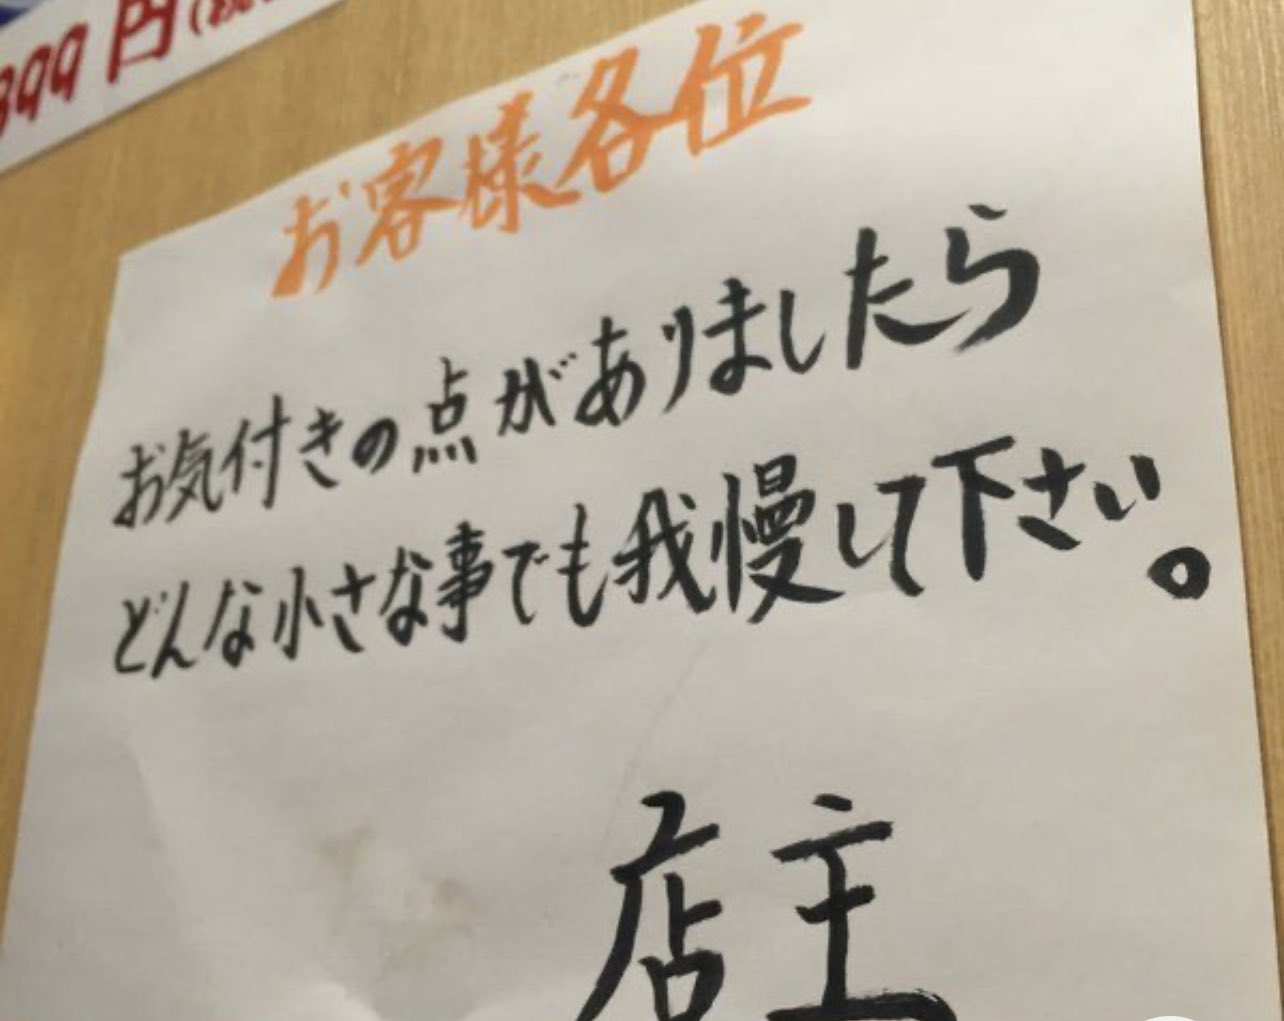 399円(税
お客様各位
お気付きの点がありましたら
どんな小さな事でも我慢して下さい。
店主